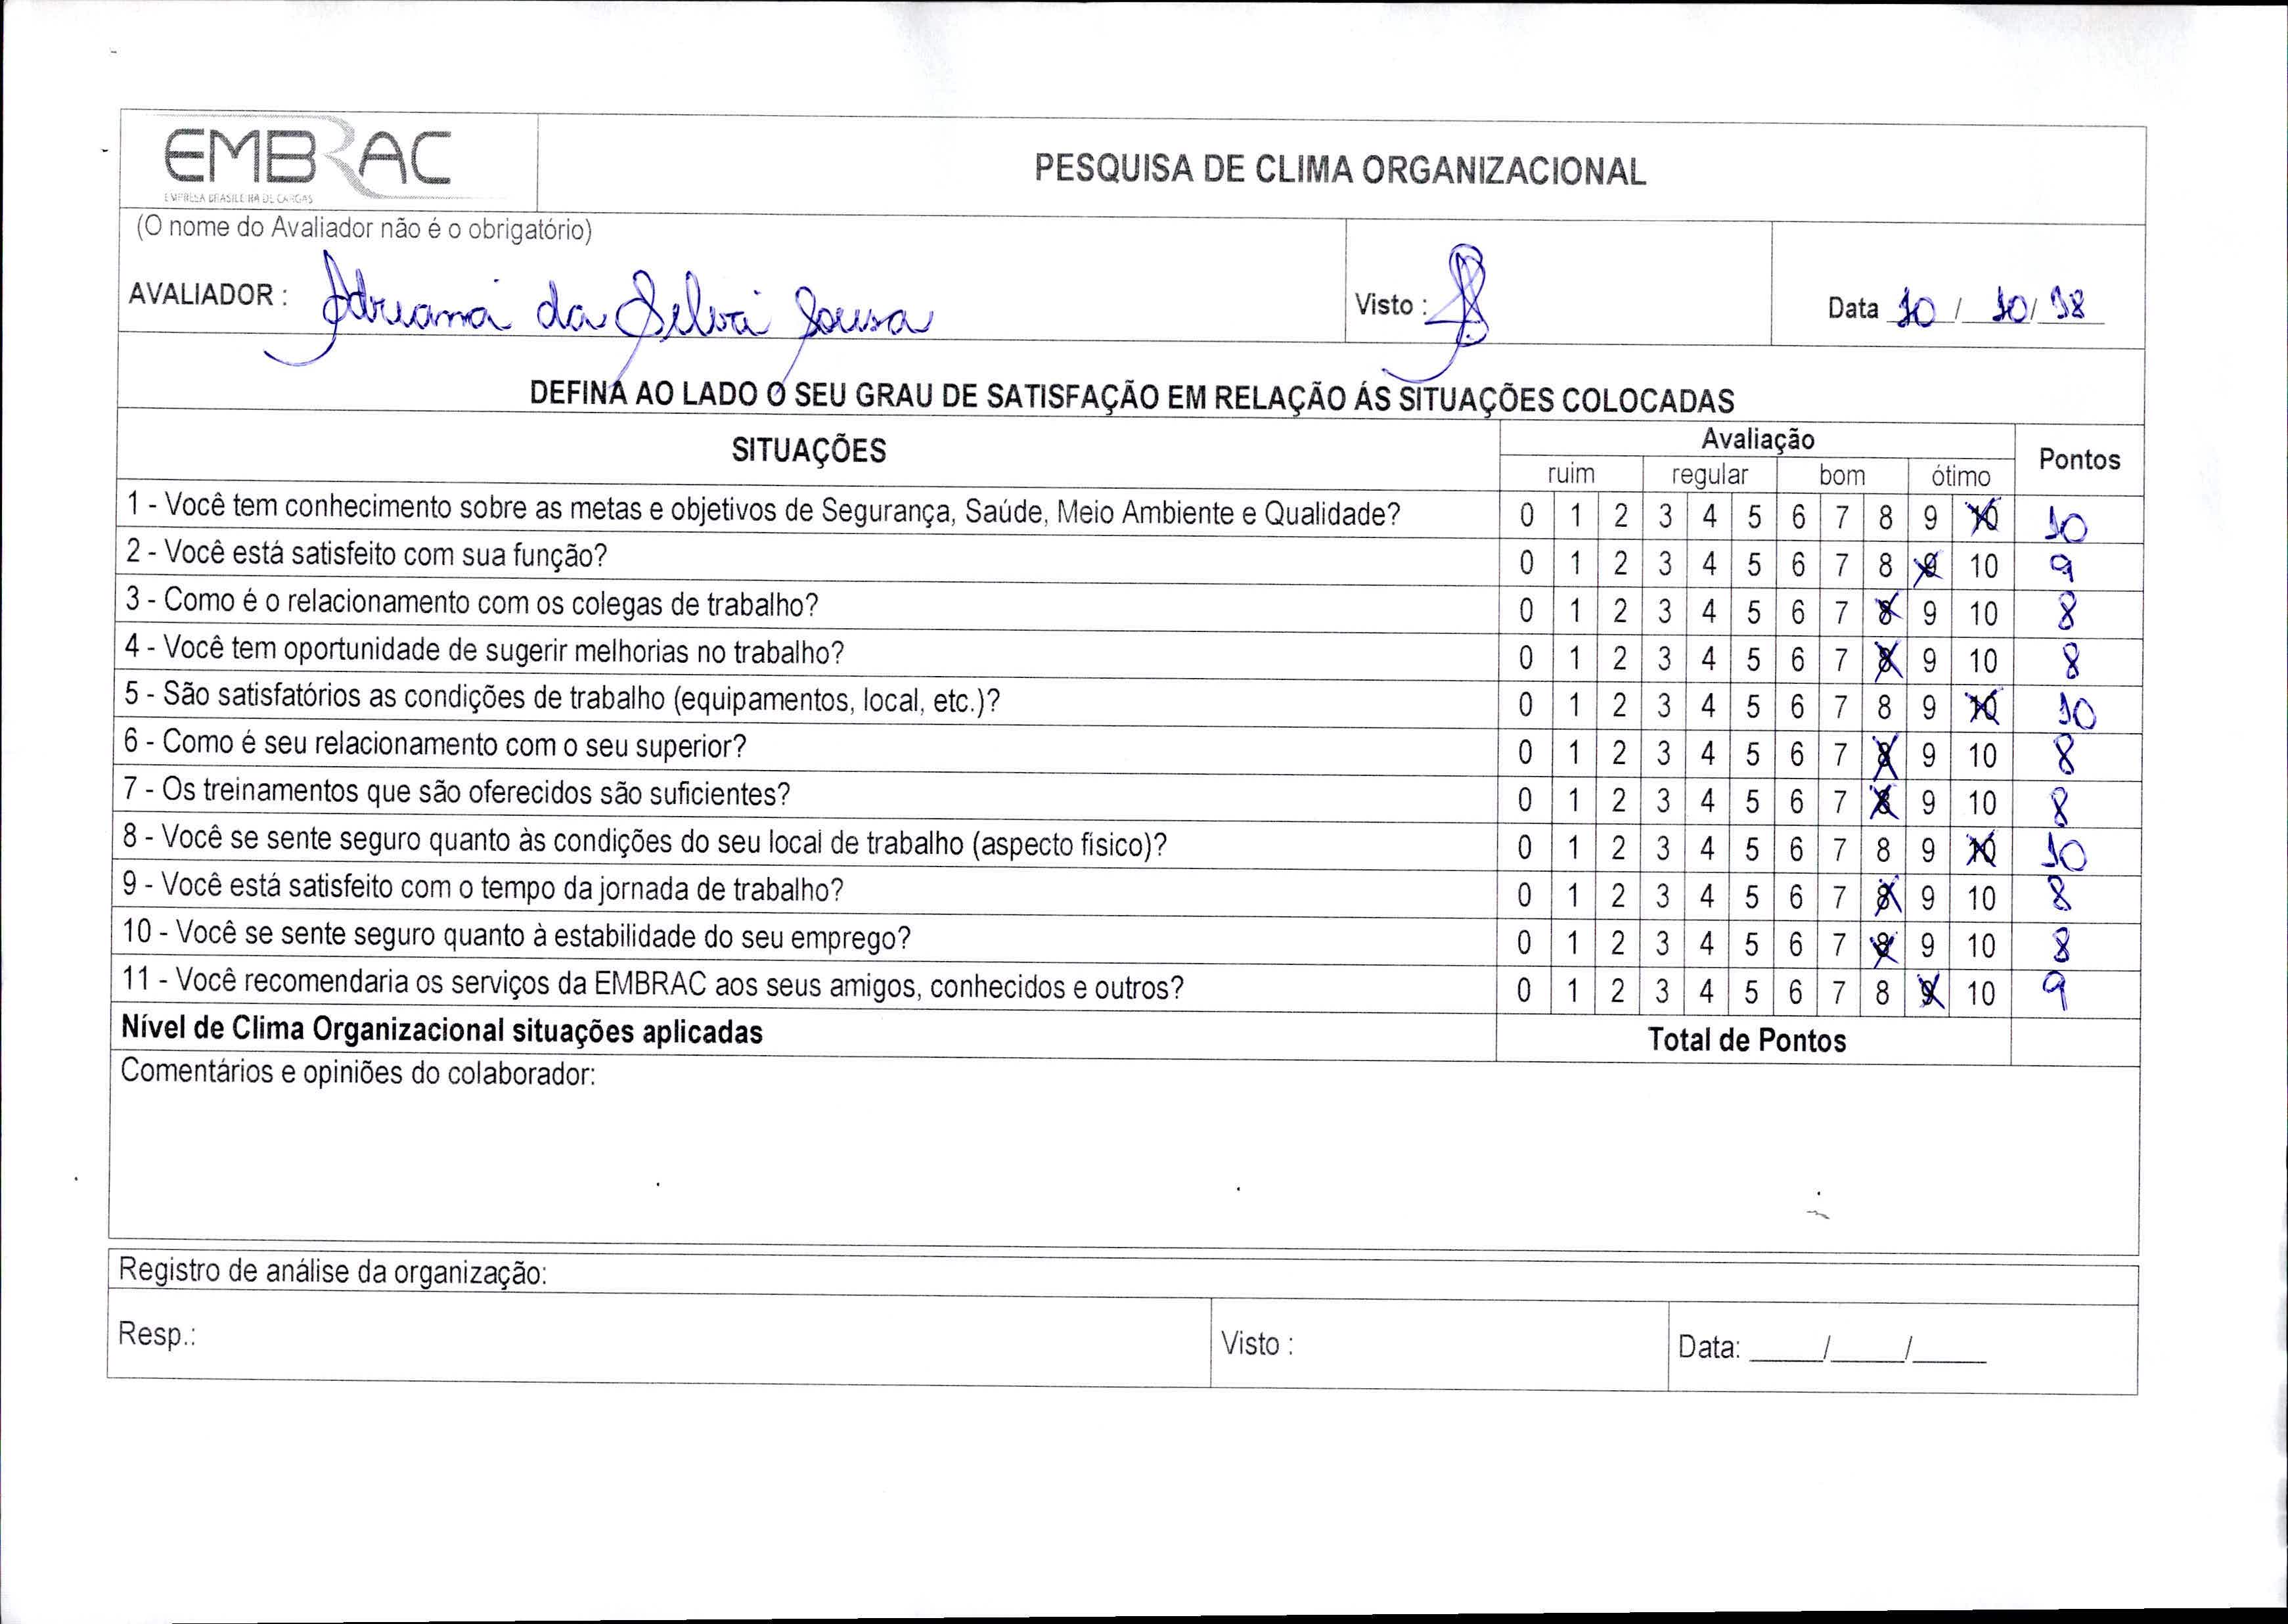 EMBRAC
EMPRESA BRASILEIRA DE CARGAS
PESQUISA DE CLIMA ORGANIZACIONAL
(O nome do Avaliador não é o obrigatório)
AVALIADOR : Adriana da Silva Sousa
Visto :
Data 10 / 10 / 18
DEFINA AO LADO O SEU GRAU DE SATISFAÇÃO EM RELAÇÃO ÁS SITUAÇÕES COLOCADAS
SITUAÇÕES
Avaliação
Pontos
ruim regular bom ótimo
1 - Você tem conhecimento sobre as metas e objetivos de Segurança, Saúde, Meio Ambiente e Qualidade? 0 1 2 3 4 5 6 7 8 9 10 10
2 - Você está satisfeito com sua função? 0 1 2 3 4 5 6 7 8 9 10 9
3 - Como é o relacionamento com os colegas de trabalho? 0 1 2 3 4 5 6 7 8 9 10 8
4 - Você tem oportunidade de sugerir melhorias no trabalho? 0 1 2 3 4 5 6 7 8 9 10 8
5 - São satisfatórios as condições de trabalho (equipamentos, local, etc.)? 0 1 2 3 4 5 6 7 8 9 10 10
6 - Como é seu relacionamento com o seu superior? 0 1 2 3 4 5 6 7 8 9 10 8
7 - Os treinamentos que são oferecidos são suficientes? 0 1 2 3 4 5 6 7 8 9 10 8
8 - Você se sente seguro quanto às condições do seu local de trabalho (aspecto físico)? 0 1 2 3 4 5 6 7 8 9 10 10
9 - Você está satisfeito com o tempo da jornada de trabalho? 0 1 2 3 4 5 6 7 8 9 10 8
10 - Você se sente seguro quanto à estabilidade do seu emprego? 0 1 2 3 4 5 6 7 8 9 10 8
11 - Você recomendaria os serviços da EMBRAC aos seus amigos, conhecidos e outros? 0 1 2 3 4 5 6 7 8 9 10 9
Nível de Clima Organizacional situações aplicadas Total de Pontos
Comentários e opiniões do colaborador:
Registro de análise da organização:
Resp.: Visto : Data: _____/_____/_____